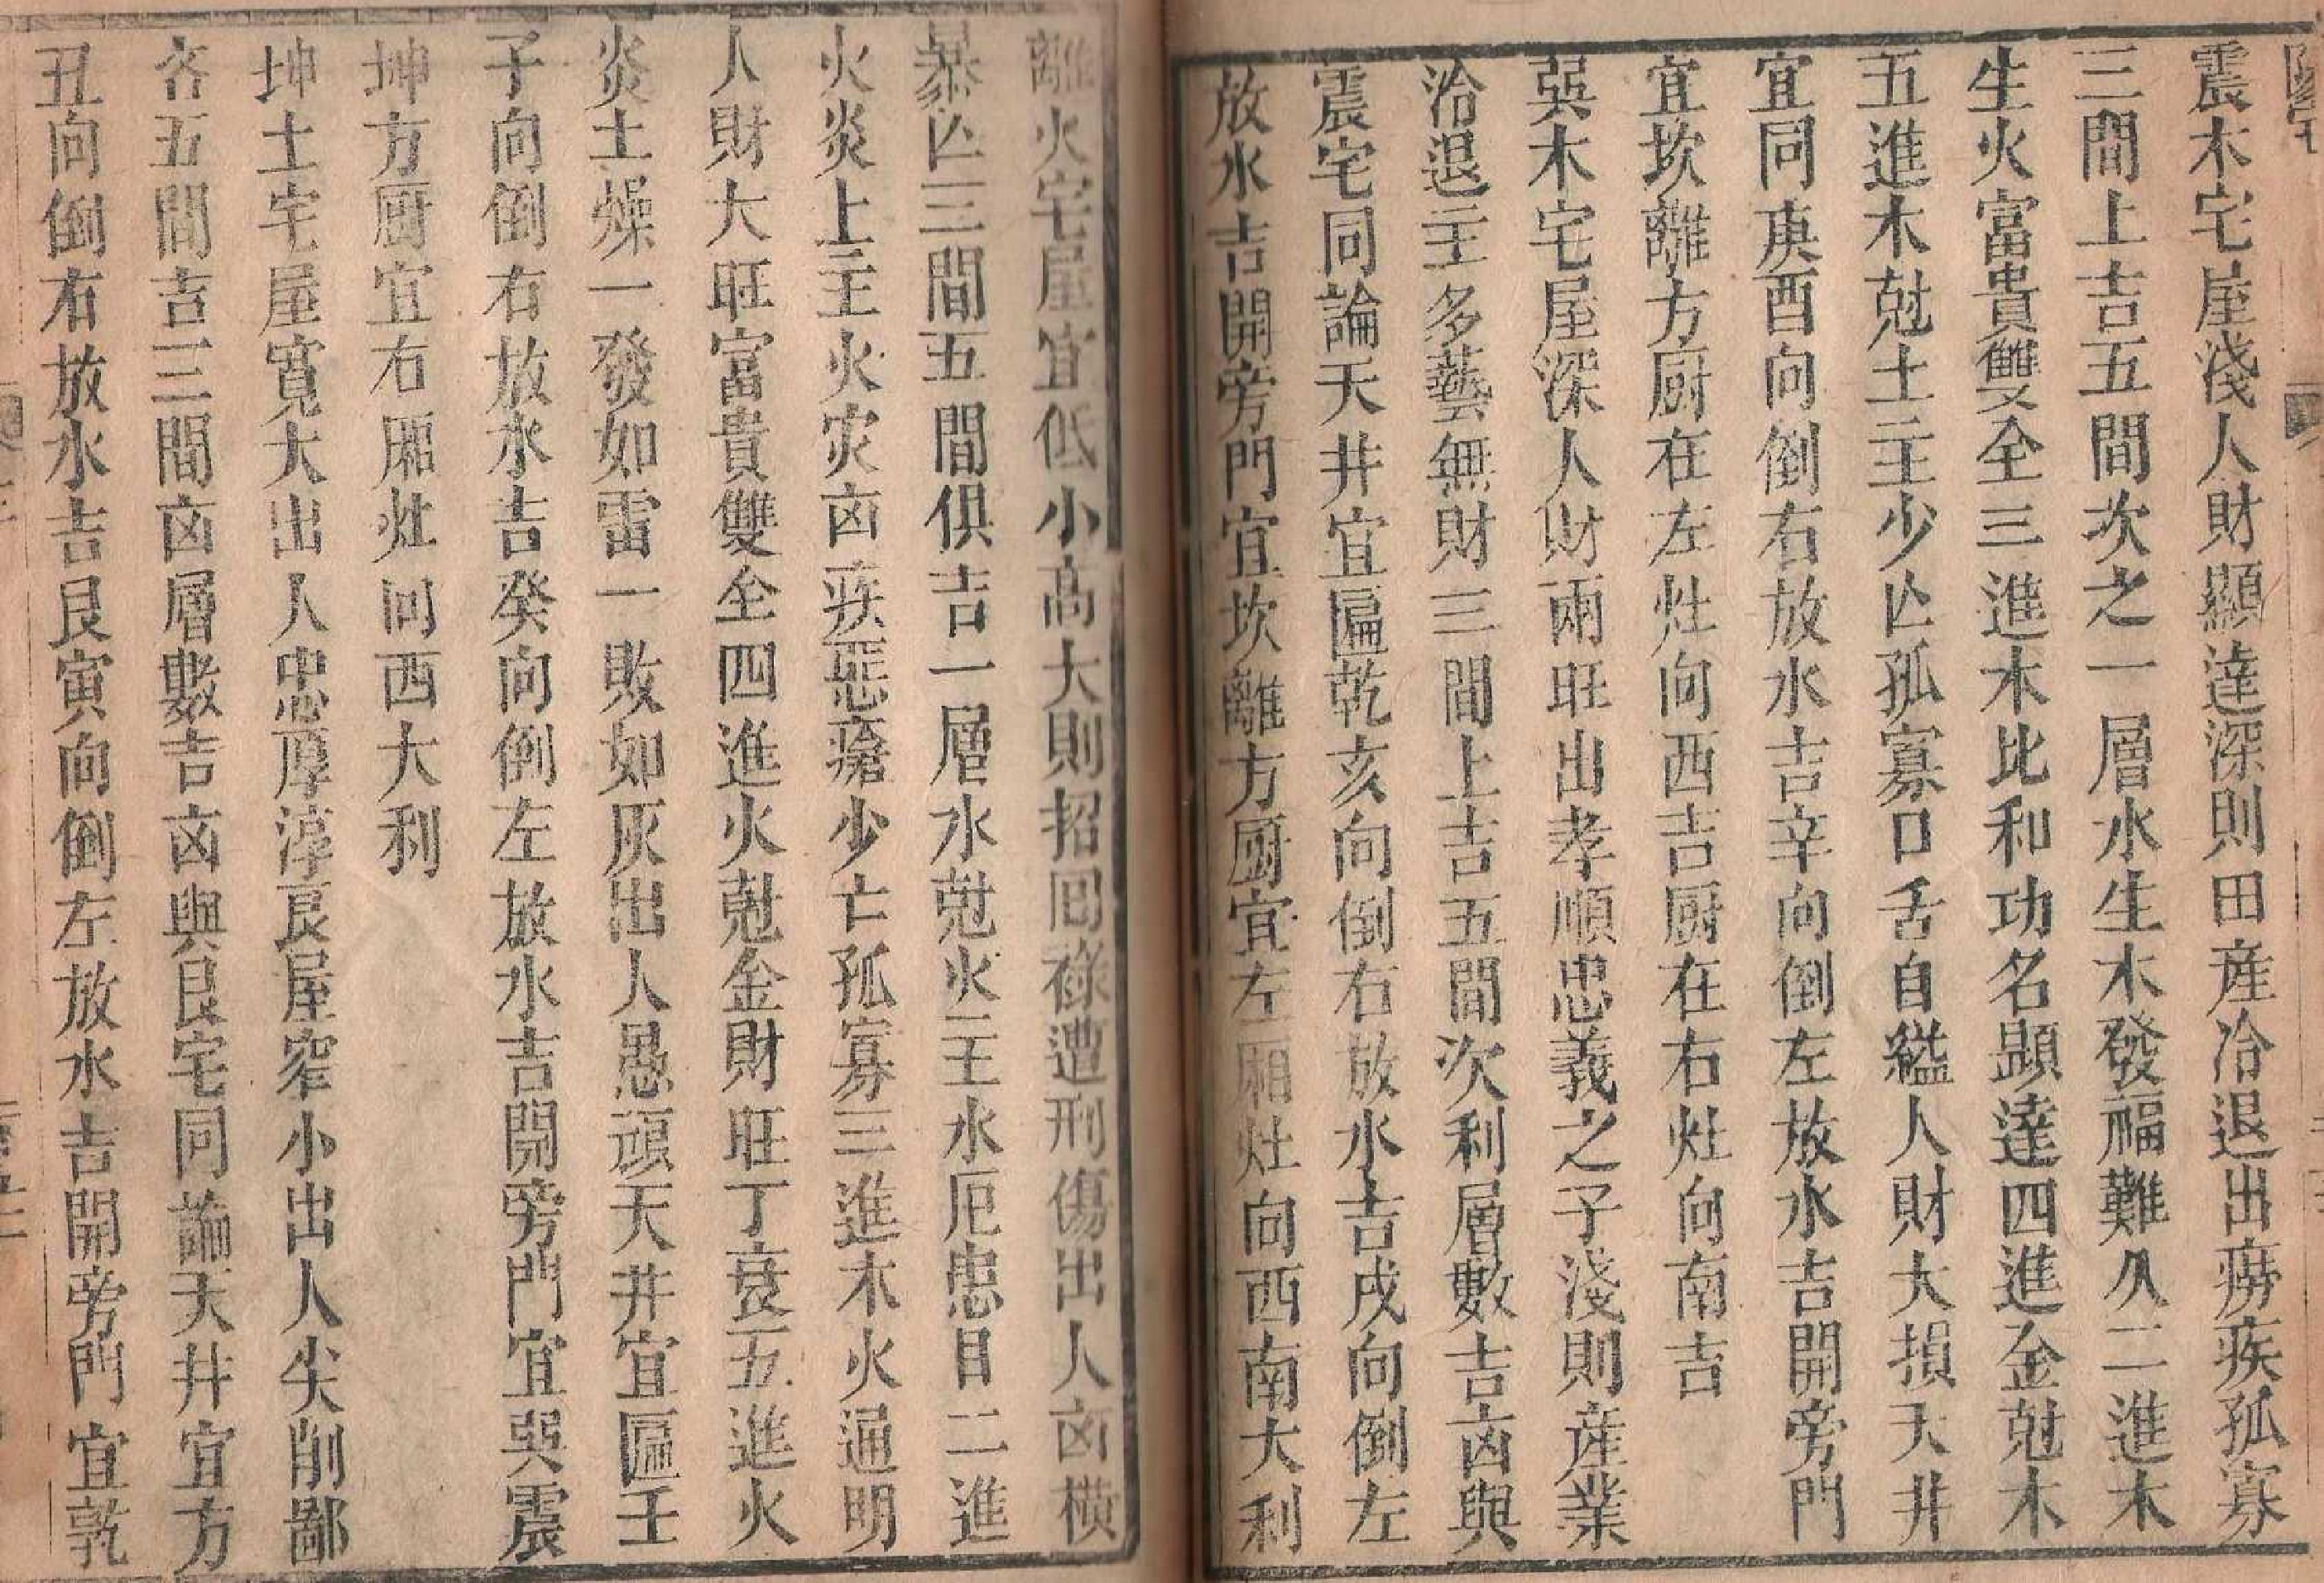 震木宅屋淺人財顯達深則田産冷退出癆疾孤寡
三間上吉五間次之一層水生木發福難久二進木
生火富貴雙全三進木比和功名顕達四進金尅木
五進木尅土主少亾孤寡口舌自縊人財大損天井
宜同庚酉向倒右放水吉辛向倒左放水吉開旁門
宜坎離方厨在左灶向西吉厨在右灶向南吉
巽木宅屋深人財兩旺出孝順忠義之子淺則産業
冷退主多藝無財三間上吉五間次利層數吉凶與
震宅同論天井宜匾乾亥向倒右放水吉戌向倒左
放水吉開旁門宜坎離方厨宜左廂灶向西南大利
離火宅屋宜低小高大則招回祿遭刑傷出人凶橫
暴亾三間五間俱吉一層水尅火主水厄患目二進
火炎上主火灾凶疾惡瘡少亡孤寡三進木火通明
人財大旺富貴雙全四進火尅金財旺丁衰五進火
炎土燥一發如雷一敗如灰出人愚頑天井宜匾壬
子向倒右放水吉癸向倒左放水吉開旁門宜巽震
坤方厨宜右廂灶向西大利
坤土宅屋寬大出人忠厚淳良屋窄小出人尖削鄙
吝五間吉三間凶層數吉凶與艮宅同論天井宜方
丑向倒右放水吉艮寅向倒左放水吉開旁門宜乾